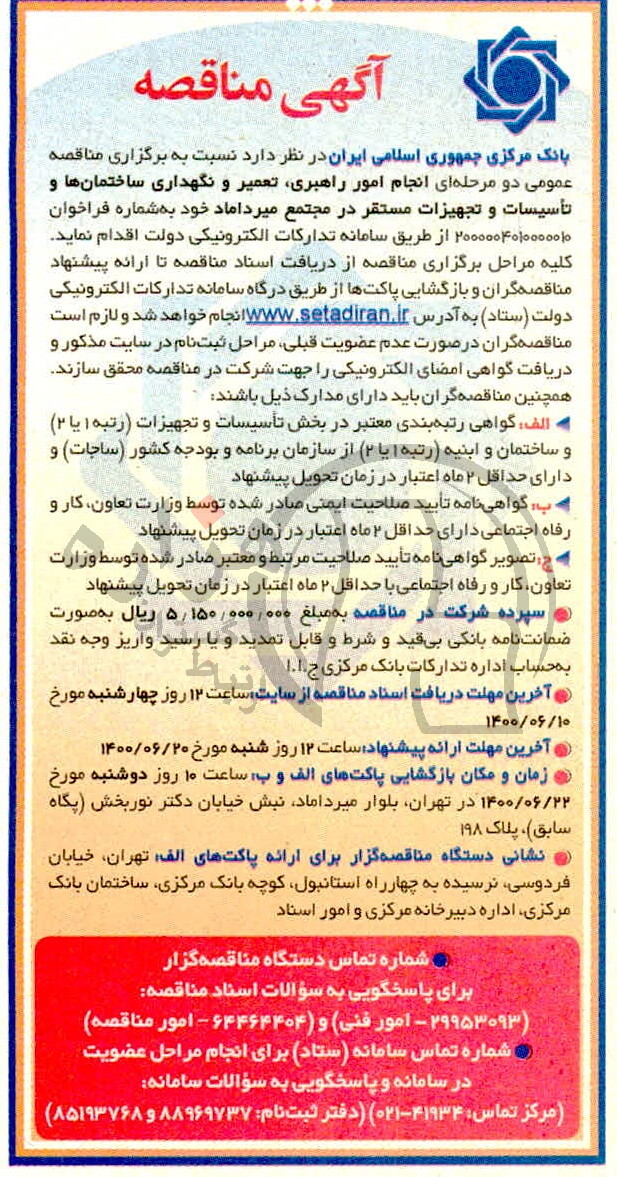 آگهی مناقصه
بانک مرکزی جمهوری اسلامی ایران در نظر دارد نسبت به برگزاری مناقصه
عمومی دو مرحله‌ای انجام امور راهبری، تعمیر و نگهداری ساختمان‌ها و
تأسیسات و تجهیزات مستقر در مجتمع میرداماد خود به‌شماره فراخوان
۲۰۰۰۰۰۴۰۱۰۰۰۰۰۱۰ از طریق سامانه تدارکات الکترونیکی دولت اقدام نماید.
کلیه مراحل برگزاری مناقصه از دریافت اسناد مناقصه تا ارائه پیشنهاد
مناقصه‌گران و بازگشایی پاکت‌ها از طریق درگاه سامانه تدارکات الکترونیکی
دولت (ستاد) به آدرس www.setadiran.ir انجام خواهد شد و لازم است
مناقصه‌گران درصورت عدم عضویت قبلی، مراحل ثبت‌نام در سایت مذکور و
دریافت گواهی امضای الکترونیکی را جهت شرکت در مناقصه محقق سازند.
همچنین مناقصه‌گران باید دارای مدارک ذیل باشند:
الف: گواهی رتبه‌بندی معتبر در بخش تأسیسات و تجهیزات (رتبه ۱ یا ۲)
و ساختمان و ابنیه (رتبه ۱ یا ۲) از سازمان برنامه و بودجه کشور (ساجات) و
دارای حداقل ۲ ماه اعتبار در زمان تحویل پیشنهاد
ب: گواهی‌نامه تأیید صلاحیت ایمنی صادر شده توسط وزارت تعاون، کار و
رفاه اجتماعی دارای حداقل ۲ ماه اعتبار در زمان تحویل پیشنهاد
ج: تصویر گواهی‌نامه تأیید صلاحیت مرتبط و معتبر صادر شده توسط وزارت
تعاون، کار و رفاه اجتماعی با حداقل ۲ ماه اعتبار در زمان تحویل پیشنهاد
سپرده شرکت در مناقصه به‌مبلغ ۵٫۱۵۰٫۰۰۰٫۰۰۰ ریال به‌صورت
ضمانت‌نامه بانکی بی‌قید و شرط و قابل تمدید و یا رسید واریز وجه نقد
به‌حساب اداره تدارکات بانک مرکزی ج.ا.ا
آخرین مهلت دریافت اسناد مناقصه از سایت: ساعت ۱۲ روز چهارشنبه مورخ
۱۴۰۰/۰۶/۱۰
آخرین مهلت ارائه پیشنهاد: ساعت ۱۲ روز شنبه مورخ ۱۴۰۰/۰۶/۲۰
زمان و مکان بازگشایی پاکت‌های الف و ب: ساعت ۱۰ روز دوشنبه مورخ
۱۴۰۰/۰۶/۲۲ در تهران، بلوار میرداماد، نبش خیابان دکتر نوربخش (پگاه
سابق)، پلاک ۱۹۸
نشانی دستگاه مناقصه‌گزار برای ارائه پاکت‌های الف: تهران، خیابان
فردوسی، نرسیده به چهارراه استانبول، کوچه بانک مرکزی، ساختمان بانک
مرکزی، اداره دبیرخانه مرکزی و امور اسناد
شماره تماس دستگاه مناقصه‌گزار
برای پاسخگویی به سؤالات اسناد مناقصه:
(۲۹۹۵۳۰۹۳ - امور فنی) و (۶۴۴۶۴۴۰۴ - امور مناقصه)
شماره تماس سامانه (ستاد) برای انجام مراحل عضویت
در سامانه و پاسخگویی به سؤالات سامانه:
(مرکز تماس: ۴۱۹۳۴-۰۲۱) (دفتر ثبت‌نام: ۸۸۹۶۹۷۳۷ و ۸۵۱۹۳۷۶۸)